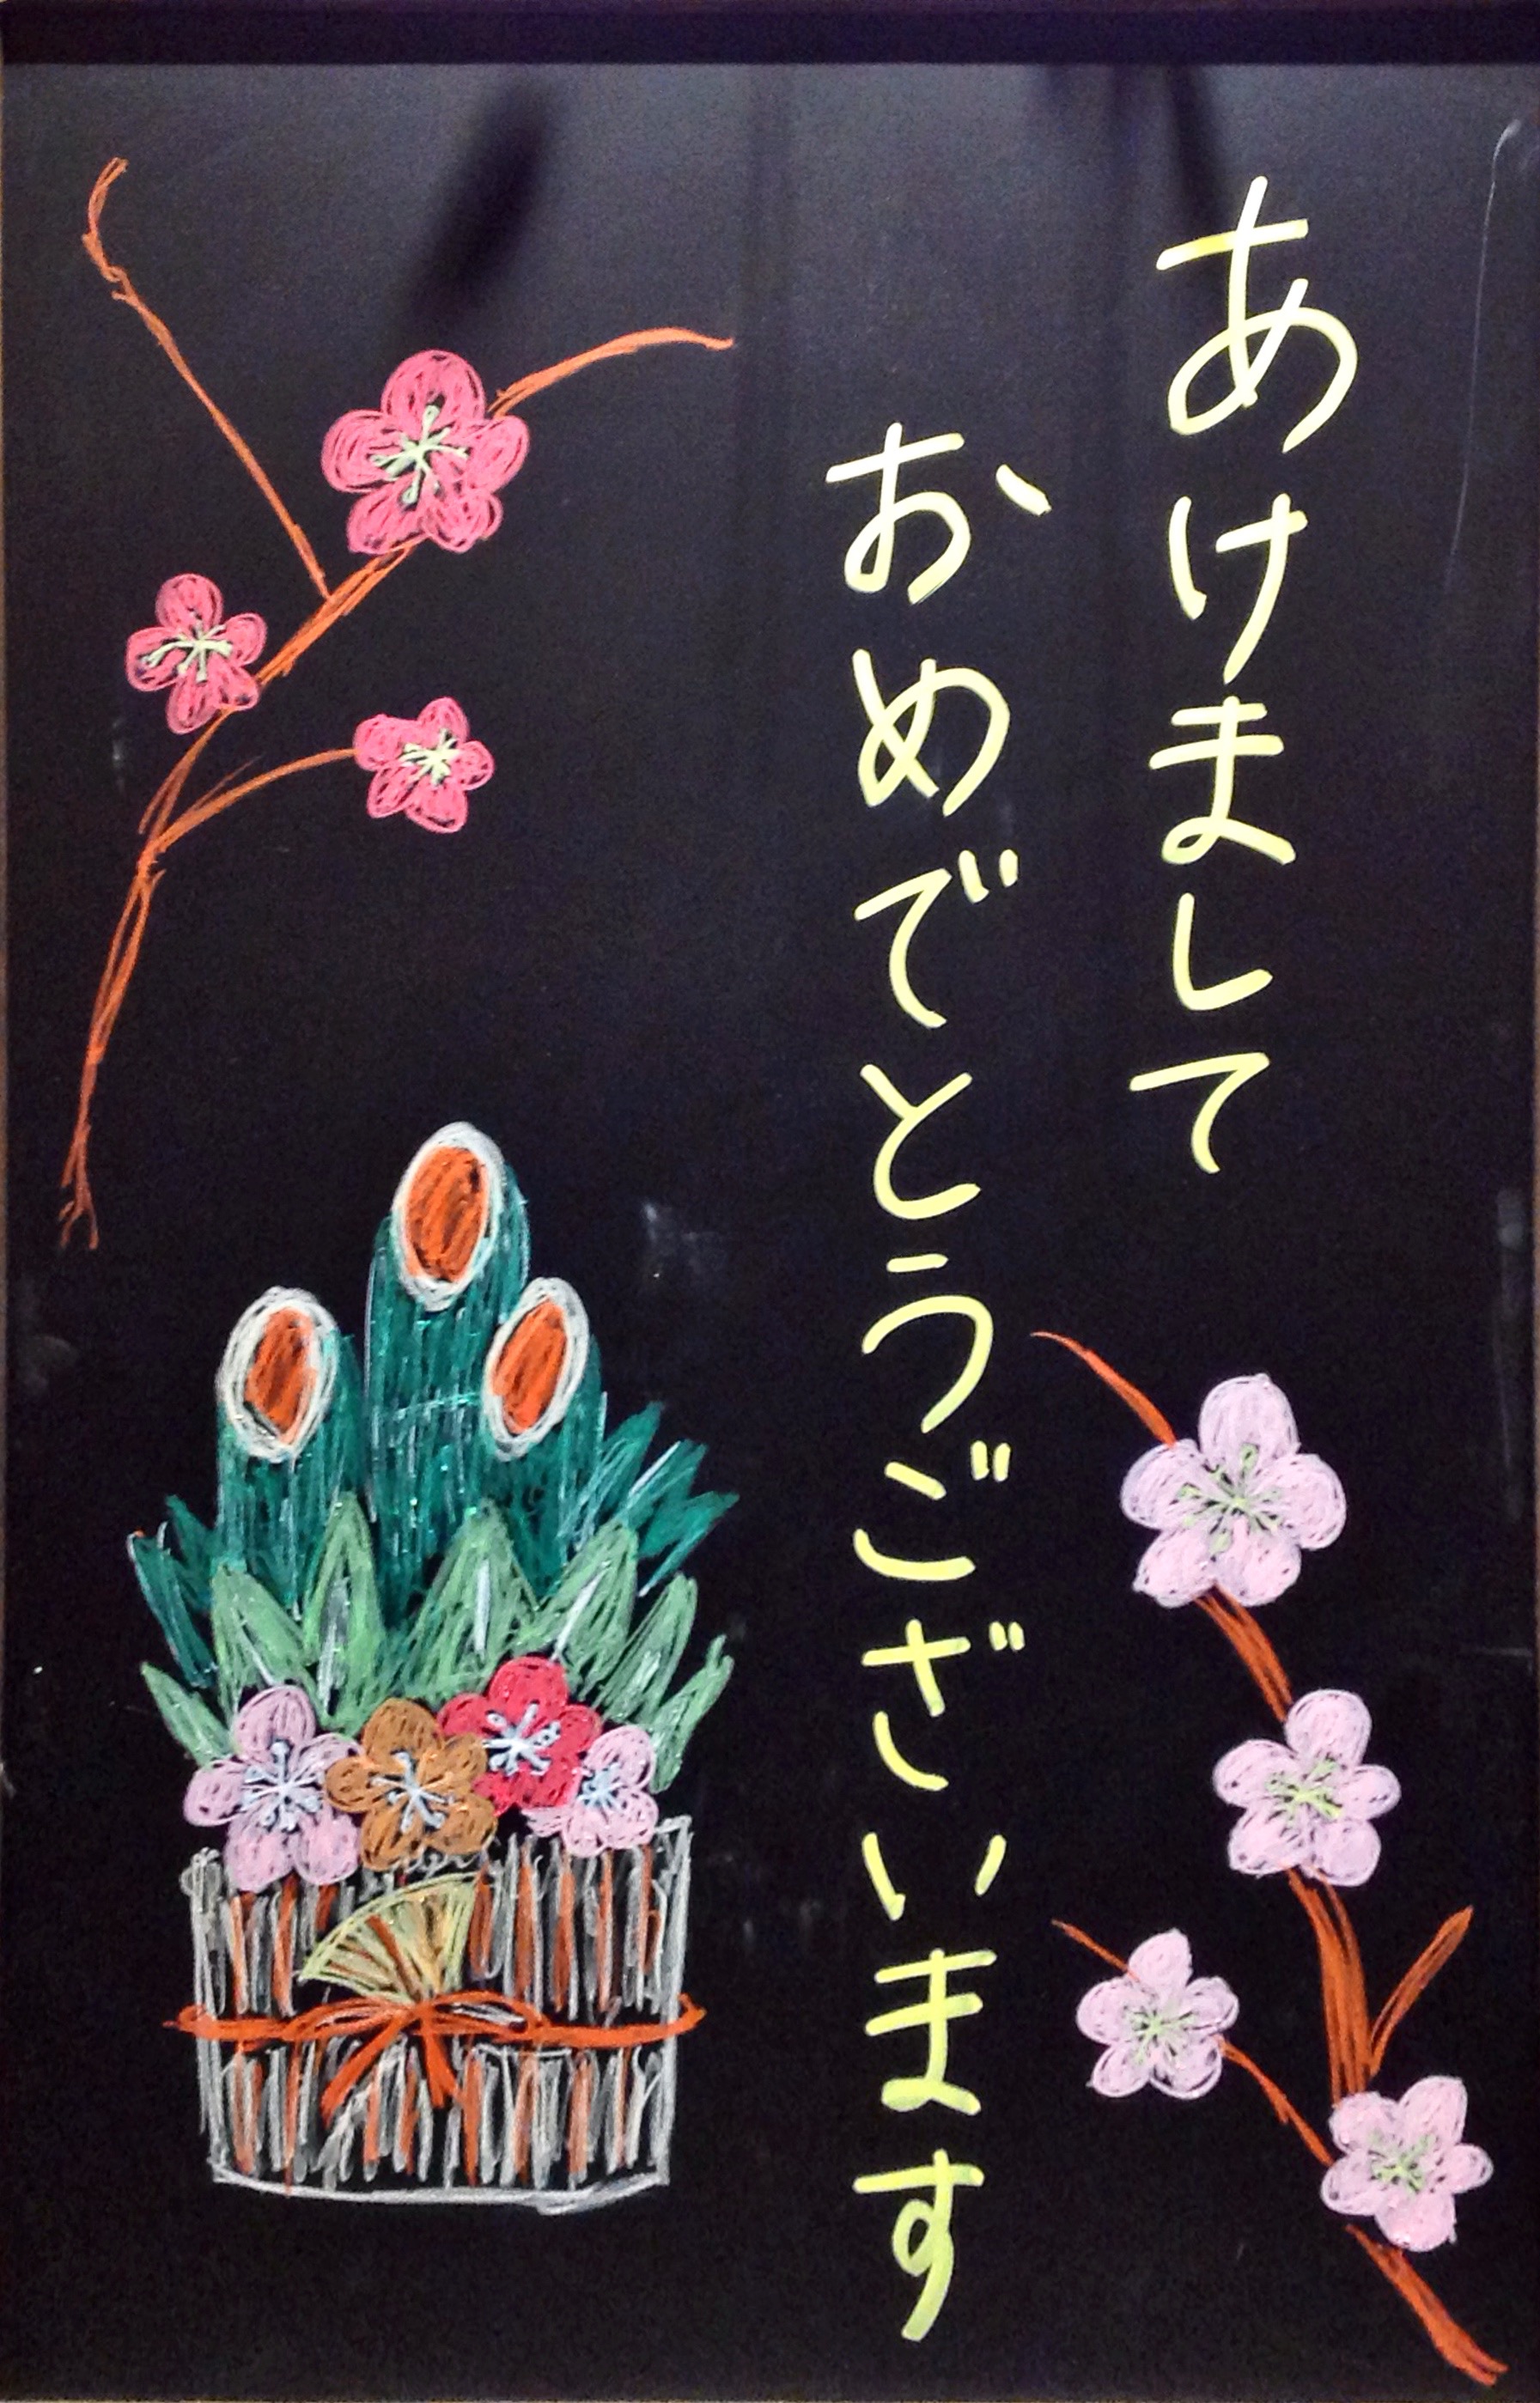 あけまして
おめでとうございます